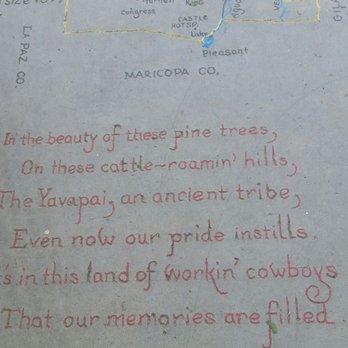 Congress
CASTLE
HOT SP.
Lake
Pleasant
LA PAZ CO
MARICOPA CO.
In the beauty of these pine trees,
On these cattle~roamin' hills,
The Yavapai, an ancient tribe,
Even now our pride instills.
's in this land of workin' cowboys
That our memories are filled.